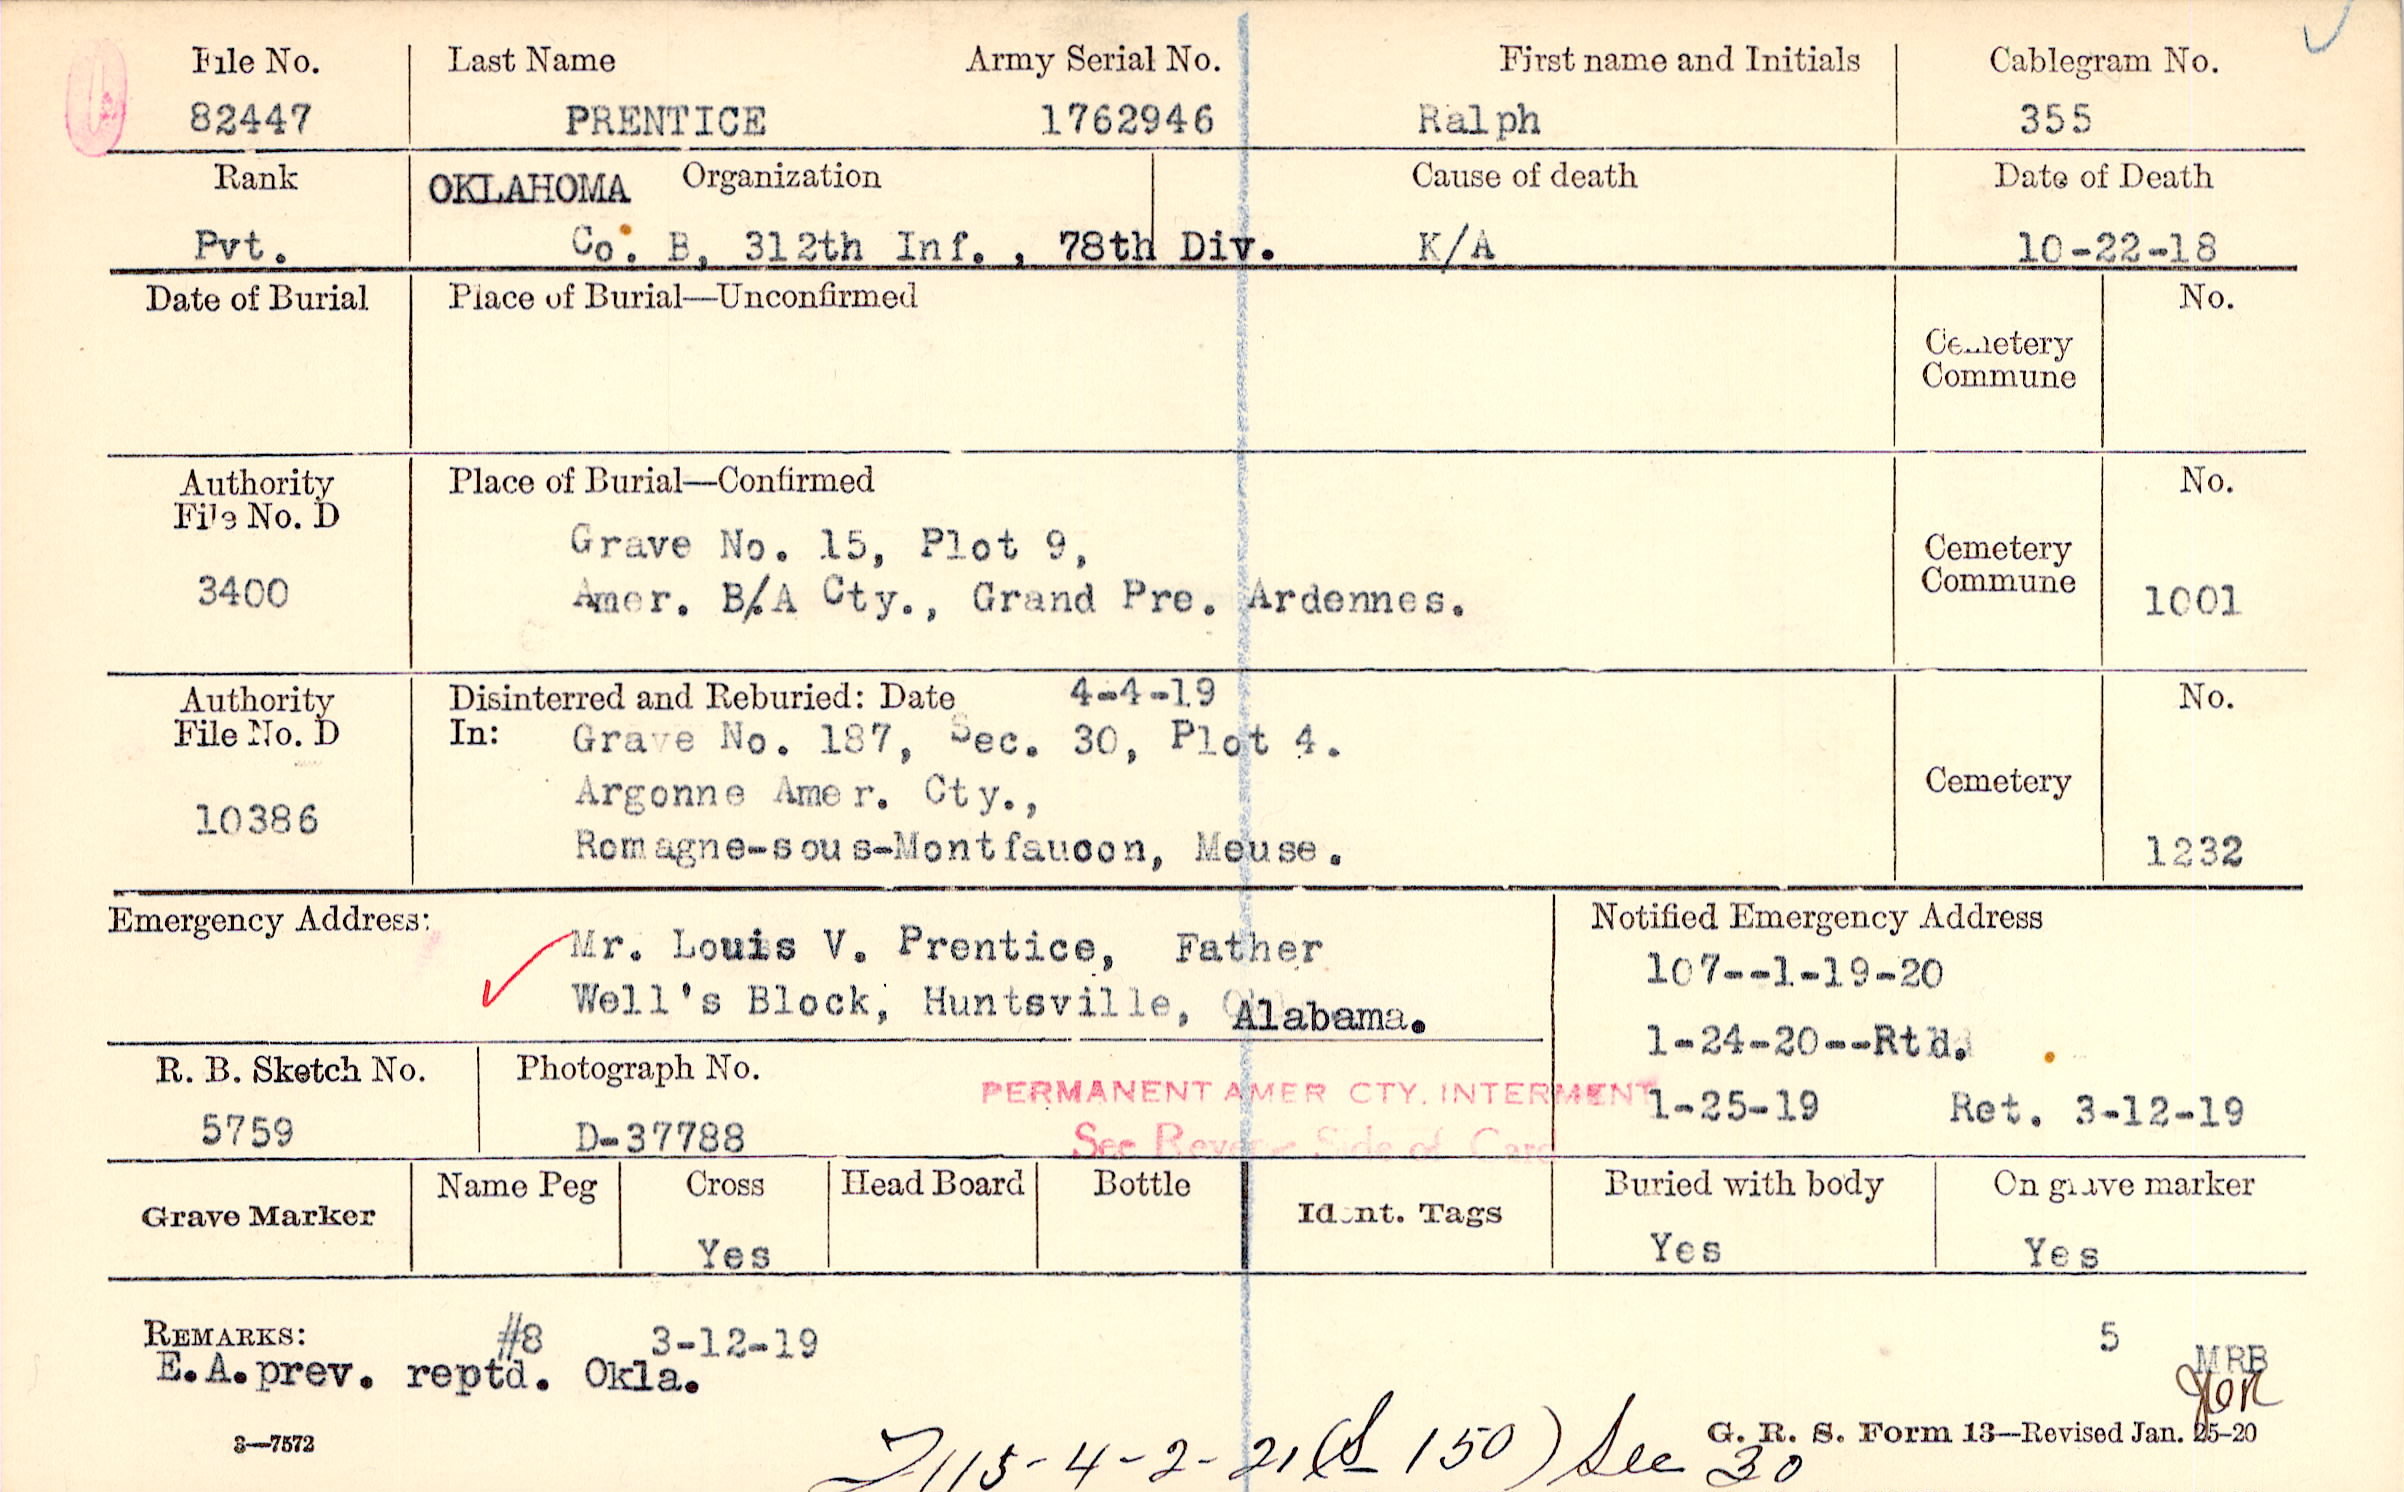 File No. Last Name Army Serial No. First name and Initials Cablegram No.
82447 PRENTICE 1762946 Ralph 355
Rank OKLAHOMA Organization Cause of death Date of Death
Pvt. Co. B, 312th Inf., 78th Div. K/A 10-22-18
Date of Burial Place of Burial—Unconfirmed No.
Cemetery
Commune
Authority Place of Burial—Confirmed No.
File No. D
Grave No. 15, Plot 9,
Cemetery
Commune
3400 Amer. B/A Cty., Grand Pre. Ardennes. 1001
Authority Disinterred and Reburied: Date 4-4-19 No.
File No. D In: Grave No. 187, Sec. 30, Plot 4.
Argonne Amer. Cty., Cemetery
10386
Romagne-sous-Montfaucon, Meuse. 1232
Emergency Address: Notified Emergency Address
Mr. Louis V. Prentice, Father 107--1-19-20
Well's Block, Huntsville, Alabama.
1-24-20--Rtd.
R. B. Sketch No. Photograph No.
PERMANENT AMER CTY. INTERMENT
5759 D-37788 1-25-19 Ret. 3-12-19
See Reverse Side of Card
Grave Marker Name Peg Cross Head Board Bottle Ident. Tags Buried with body On grave marker
Yes Yes Yes
REMARKS: #8 3-12-19 5
E.A.prev. reptd. Okla. MRB
3—7572 G. R. S. Form 13—Revised Jan. 25-20
115-4-2-21 150) See 30